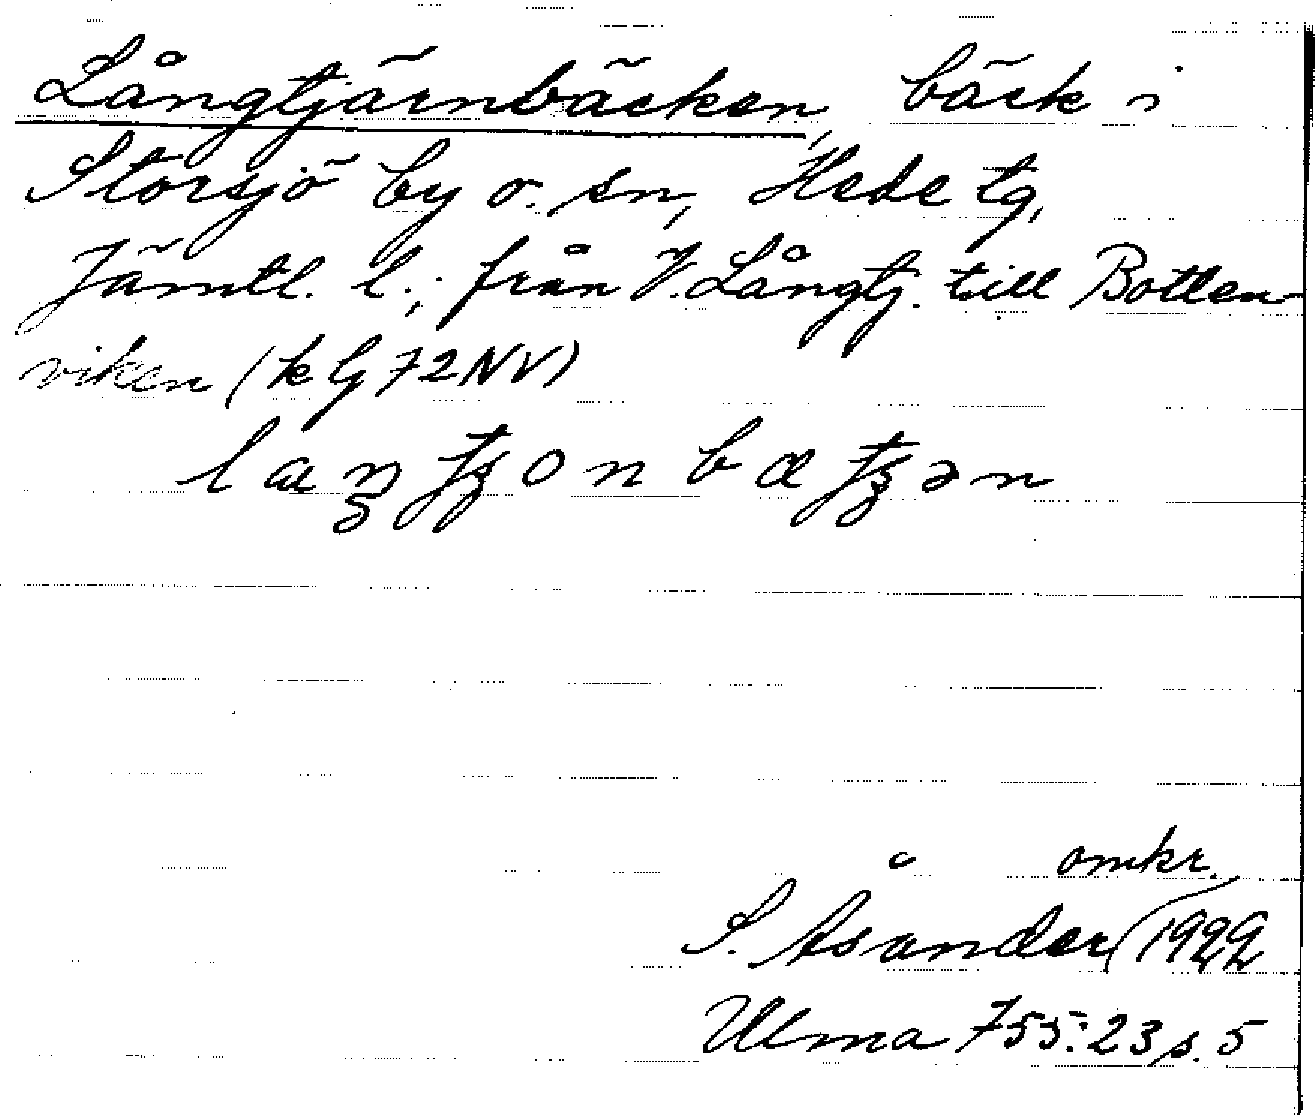 Långtjärnbäcken, bäck i
Storsjö by o. sn, Hede tg,
Jämtl. l.; från V. Långtj. till Botten-
viken (kG 72NV)
omkr.
S. Åsander (1922
Ulma 755:23 s. 5